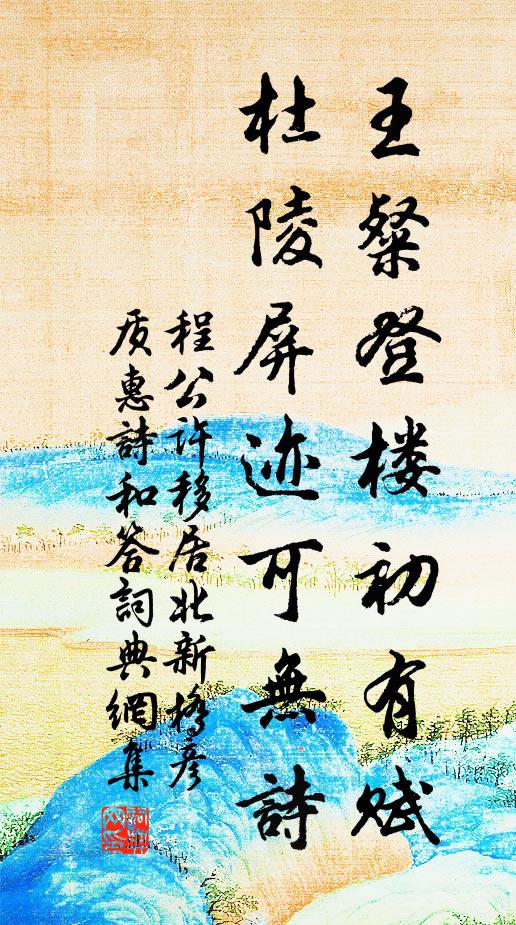 王粲登楼初有赋
杜陵屏迹可無詩
程公许移居北新橋彦
质惠詩和答詞典網集